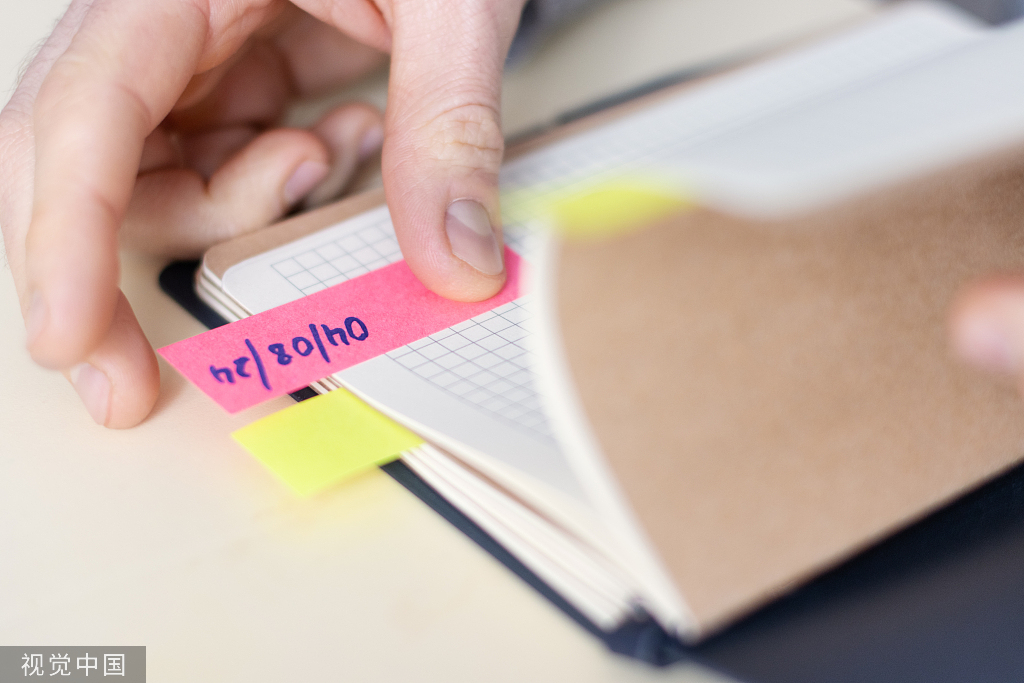 04/08/24
视觉中国